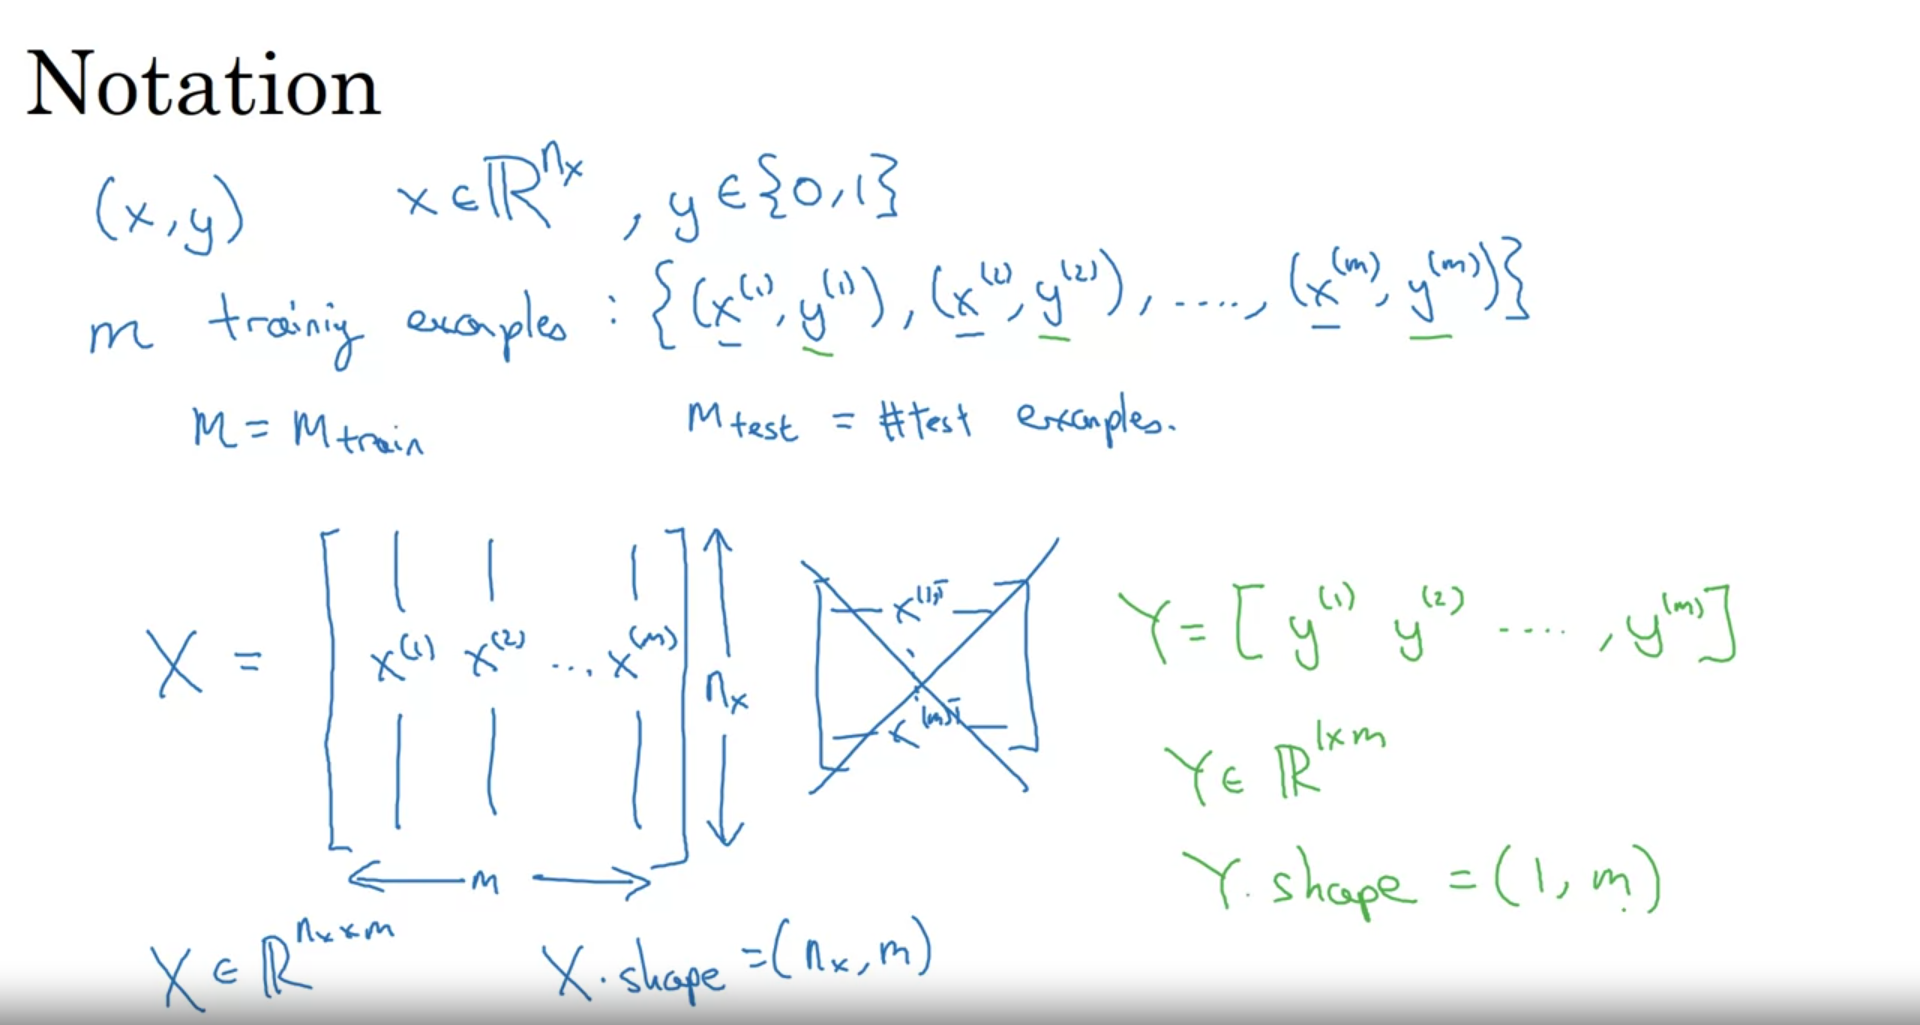 Notation
(x,y) x∈ℝ^{n_x}, y∈{0,1}
m training examples : {(x^{(1)}, y^{(1)}), (x^{(2)}, y^{(2)}), ....., (x^{(m)}, y^{(m)})}
M = M_{train} M_{test} = #test examples.
X = [ x^{(1)} x^{(2)} ... x^{(m)} ] n_x
x^{(1)T}
x^{(m)T}
m
X ∈ ℝ^{n_x × m} X.shape = (n_x, m)
Y = [ y^{(1)} y^{(2)} ...., y^{(m)} ]
Y ∈ ℝ^{1×m}
Y.shape = (1, m)